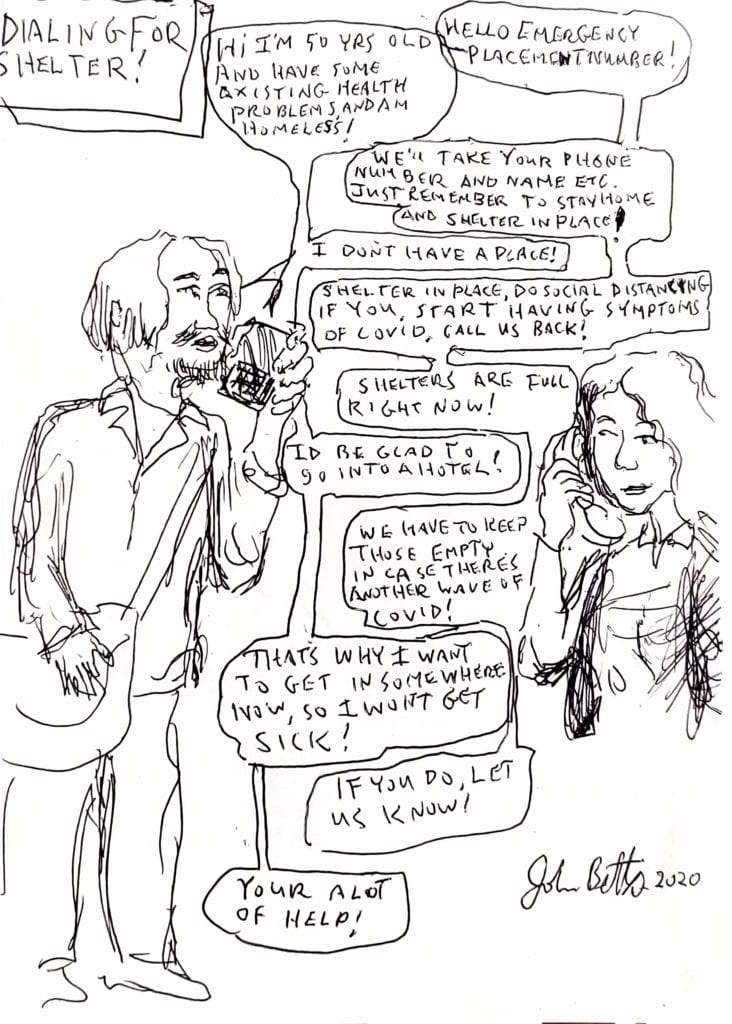 DIALING FOR
SHELTER!
HELLO EMERGENCY
PLACEMENT NUMBER!
Hi I'M 50 YRS OLD
AND HAVE SOME
EXISTING HEALTH
PROBLEMS, AND AM
HOMELESS!
WE'll TAKE YOUR PHONE
NUMBER AND NAME ETC.
JUST REMEMBER TO STAY HOME
AND SHELTER IN PLACE!
I DON'T HAVE A PLACE!
SHELTER IN PLACE, DO SOCIAL DISTANCING
IF YOU, START HAVING SYMPTOMS
OF COVID, CALL US BACK!
SHELTERS ARE FULL
RIGHT NOW!
I'D BE GLAD TO
GO INTO A HOTEL!
WE HAVE TO KEEP
THOSE EMPTY
IN CASE THERE'S
ANOTHER WAVE OF
COVID!
THATS WHY I WANT
TO GET IN SOMEWHERE
NOW, SO I WONT GET
SICK!
IF YOU DO, LET
US KNOW!
YOUR A LOT
OF HELP!
John Betts 2020